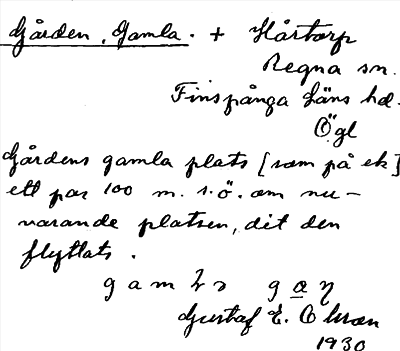 Gården, Gamla. + Hårtorp
Regna sn.
Finspånga läns hd.
Ögl
Gårdens gamla plats [som på ek]
ett par 100 m. s.ö. om nu-
varande platsen, dit den
flyttats.
gamla
Gustaf E. Olsson
1930